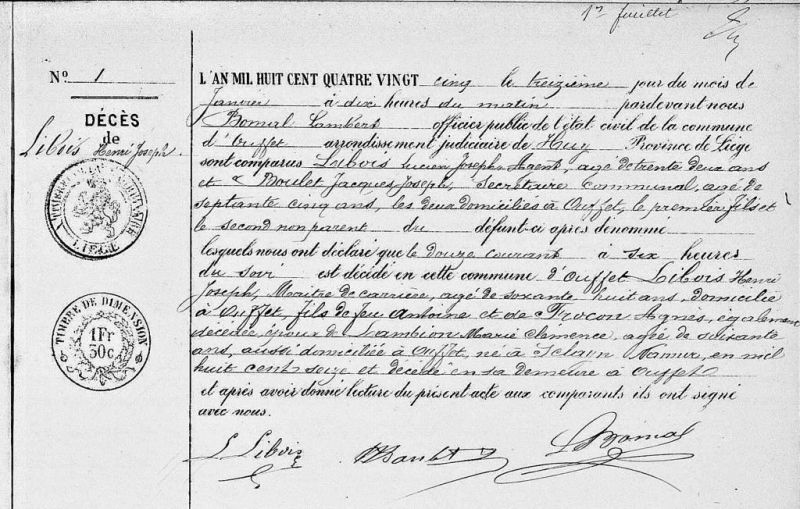 1er feuillet
N° 1
DÉCÈS
de
Libois Henri Joseph.
LIÉGE
TIMBRE DE DIMENSION
1Fr
30c
L'AN MIL HUIT CENT QUATRE VINGT cinq le treizième jour du mois de
Janvier à dix heures du matin pardevant nous
Bomal Lambert officier public de l'état civil de la commune
d'Ouffet arrondissement judiciaire de Huy Province de Liége
sont comparus Libois Lucien Joseph, Agent, agé de trente deux ans
et Boulet Jacques Joseph, Secrétaire communal, agé de
septante cinq ans, les deux domiciliés à Ouffet, le premier fils et
le second non parent du défunt ci après dénommé
lesquels nous ont déclaré que le douze courant à six heures
du soir est décédé en cette commune d'Ouffet Libois Henri
Joseph, Maître de carrière, agé de soxante huit ans, domicilié
à Ouffet, fils de feu Antoine et de Agnès, également
décédée, époux de Lambion Marie Clémence, agée de soixante
ans, aussi domiciliée à Ouffet, né à Sclayn Namur, en mil
huit cent seize et décédé en sa demeure à Ouffet
et après avoir donné lecture du présent acte aux comparants ils ont signé
avec nous.
L Libois Boulet L Bomal